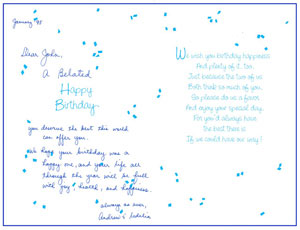 January '98
Dear John,
A Belated
Happy
Birthday
you deserve the best this world
can offer you.
We hope your birthday was a
happy one, and your life all
through the year will be full
with joy, health, and happiness.
always as ever,
Andrew &
We wish you birthday happiness
And plenty of it, too,
Just because the two of us
Both think so much of you.
So please do us a favor
And enjoy your special day,
For you'd always have
the best there is
If we could have our way!